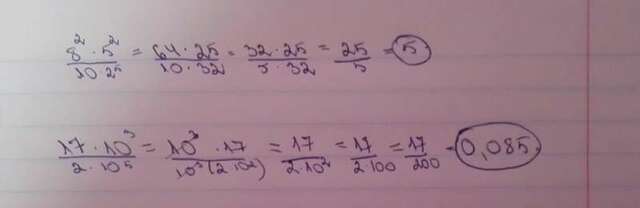 8² · 5² / 10 · 2⁵ = 64 · 25 / 10 · 32 = 32 · 25 / 5 · 32 = 25 / 5 = 5
17 · 10³ / 2 · 10⁵ = 10³ · 17 / 10³ (2 · 10²) = 17 / 2 · 10² = 17 / 2 · 100 = 17 / 200 = 0,085